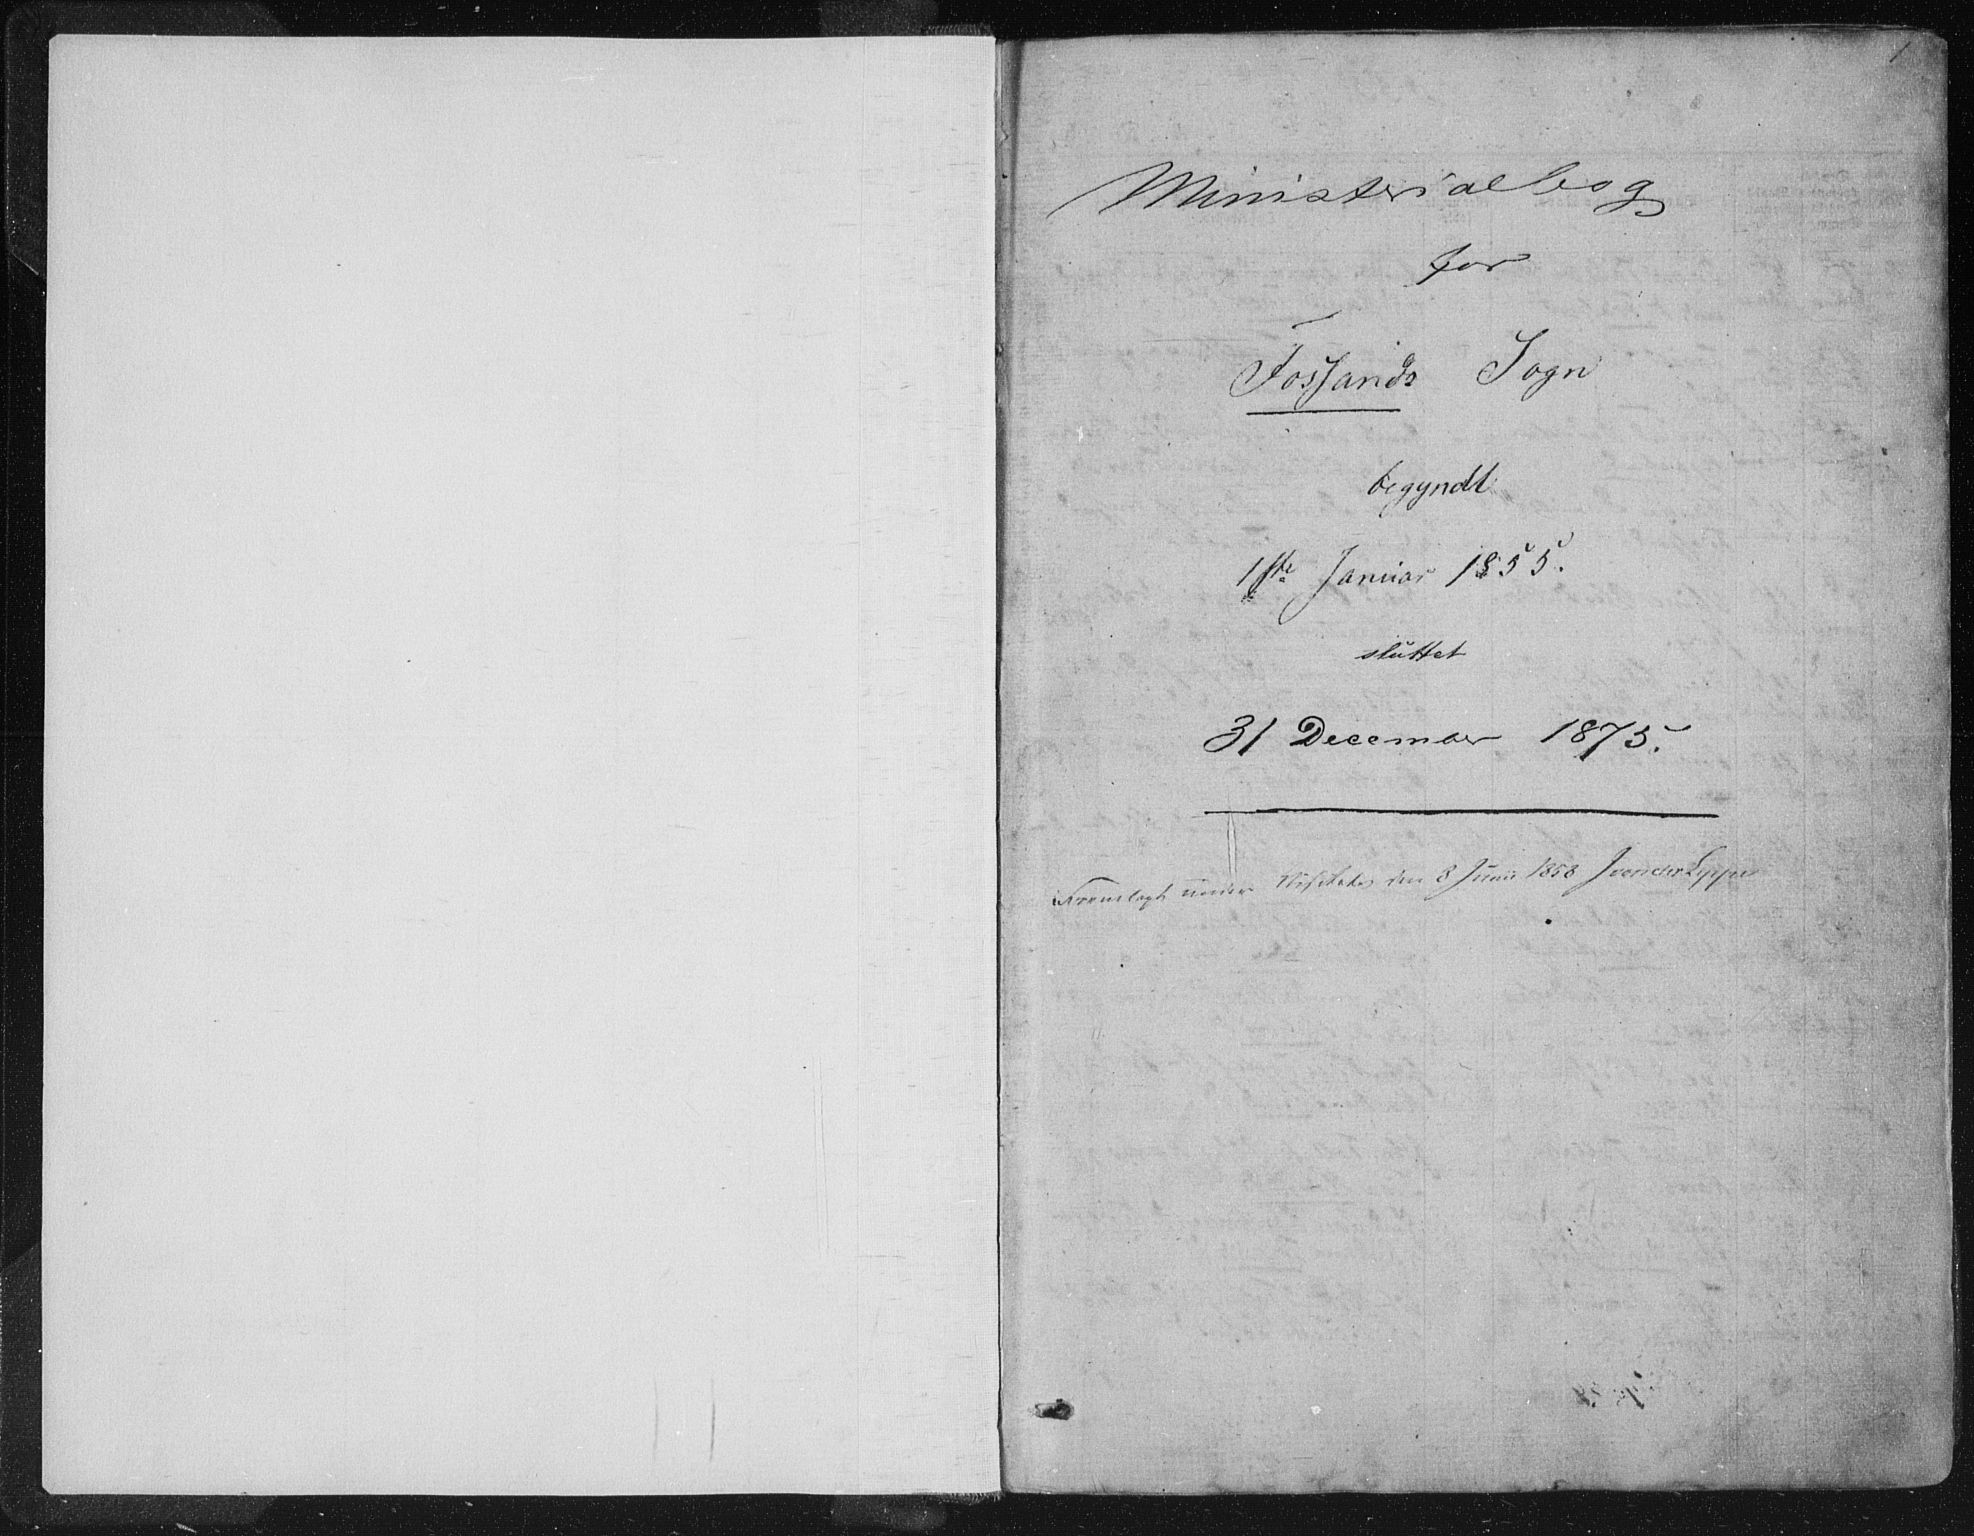 1
Ministerialbog
for
Fosslands Sogn
begyndt
1ste Januar 1855.
sluttet
31 December 1875.
Fremlagt under Visitats den 8 Juni 1858